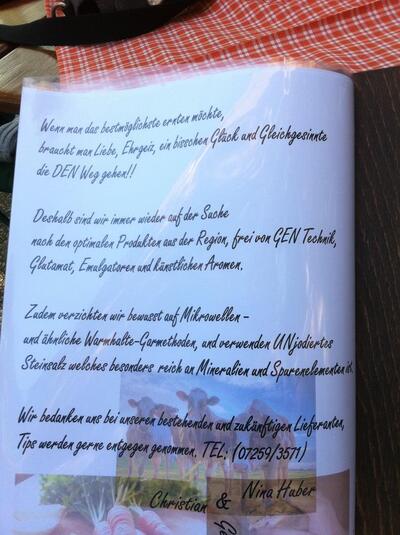 Wenn man das bestmöglichste ernten möchte,
braucht man Liebe, Ehrgeiz, ein bisschen Glück und Gleichgesinnte
die DEN Weg gehen!!
Deshalb sind wir immer wieder auf der Suche
nach den optimalen Produkten aus der Region, frei von GEN Technik,
Glutamat, Emulgatoren und künstlichen Aromen.
Zudem verzichten wir bewusst auf Mikrowellen -
und ähnliche Warmhalte-Garmethoden, und verwenden UNjodiertes
Steinsalz welches besonders reich an Mineralien und Spurenelementen ist.
Wir bedanken uns bei unseren bestehenden und zukünftigen Lieferanten,
Tips werden gerne entgegen genommen. TEL: (07259/3571)
Christian & Nina Huber